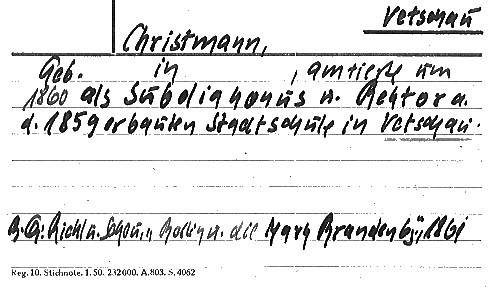 Vetschau
Christmann,
Geb. in , amtierte um
1860 als Subdiakonus u. Rektor a.
d. 1859 erbauten Stadtschule in Vetschau.
Riehl u. Scheu, Berlin u. die Mark Brandenbg, 1861
Reg. 10. Stichnote. 1. 50. 232000. A.803. S. 4062